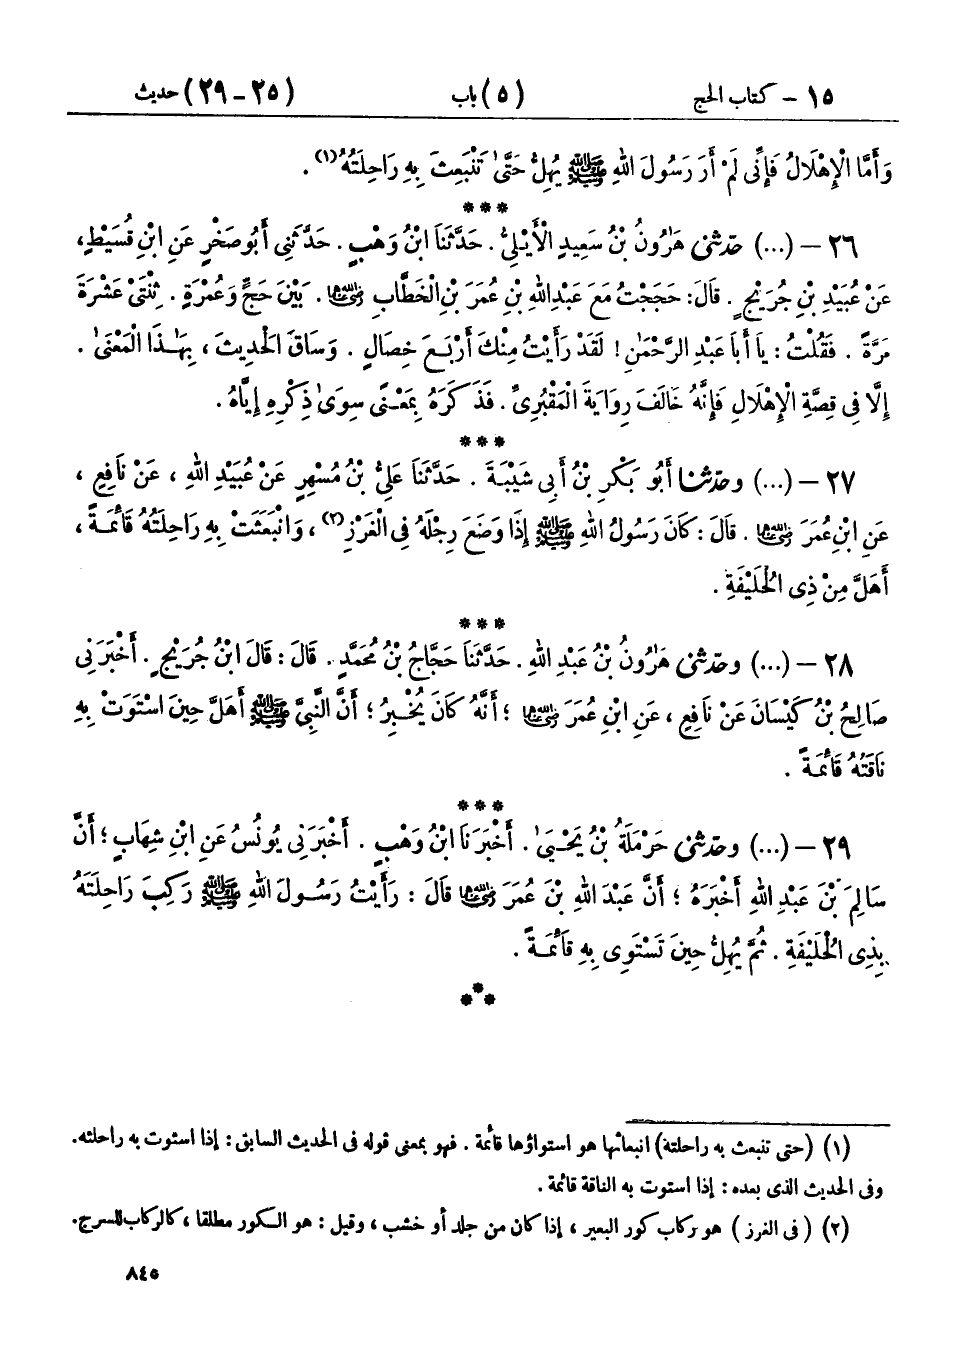 ١٥ - كتاب الحج (٥) باب (٢٥ - ٢٩) حديث
وَأَمَّا الْإِهْلَالُ فَإِنِّى لَمْ أَرَ رَسُولَ اللهِ ﷺ يُهِلُّ حَتَّىٰ تَنْبَعِثَ بِهِ رَاحِلَتُهُ(١) .
***
٢٦ - (...) حدثنى هَرُونُ بْنُ سَعِيدٍ الْأَيْلِىُّ . حَدَّثَنَا ابْنُ وَهْبٍ . حَدَّثَنِى أَبُو صَخْرٍ عَنِ ابْنِ قُسَيْطٍ،
عَنْ عُبَيْدِ بْنِ جُرَيْجٍ . قَالَ: حَجَجْتُ مَعَ عَبْدِ اللهِ بْنِ عُمَرَ بْنِ الْخَطَّابِ رضي الله عنهما . بَيْنَ حَجٍّ وَعُمْرَةٍ . ثِنْتَىْ عَشْرَةَ
مَرَّةً . فَقُلْتُ : يَا أَبَا عَبْدِ الرَّحْمَٰنِ ! لَقَدْ رَأَيْتُ مِنْكَ أَرْبَعَ خِصَالٍ . وَسَاقَ الْحَدِيثَ ، بِهَٰذَا الْمَعْنَىٰ .
إِلَّا فِى قِصَّةِ الْإِهْلَالِ فَإِنَّهُ خَالَفَ رِوَايَةَ الْمَقْبُرِىِّ . فَذَكَرَهُ بِمَعْنًى سِوَىٰ ذِكْرِهِ إِيَّاهُ .
***
٢٧ - (...) وحدثنا أَبُو بَكْرِ بْنُ أَبِى شَيْبَةَ . حَدَّثَنَا عَلِىُّ بْنُ مُسْهِرٍ عَنْ عُبَيْدِ اللهِ ، عَنْ نَافِعٍ ،
عَنِ ابْنِ عُمَرَ رضي الله عنهما . قَالَ : كَانَ رَسُولُ اللهِ ﷺ إِذَا وَضَعَ رِجْلَهُ فِى الْغَرْزِ(٢) ، وَانْبَعَثَتْ بِهِ رَاحِلَتُهُ قَائِمَةً ،
أَهَلَّ مِنْ ذِى الْحُلَيْفَةِ .
***
٢٨ - (...) وحدثنى هَرُونُ بْنُ عَبْدِ اللهِ . حَدَّثَنَا حَجَّاجُ بْنُ مُحَمَّدٍ . قَالَ : قَالَ ابْنُ جُرَيْجٍ . أَخْبَرَنِى
صَالِحُ بْنُ كَيْسَانَ عَنْ نَافِعٍ ، عَنِ ابْنِ عُمَرَ رضي الله عنهما ؛ أَنَّهُ كَانَ يُخْبِرُ ؛ أَنَّ النَّبِىَّ ﷺ أَهَلَّ حِينَ اسْتَوَتْ بِهِ
نَاقَتُهُ قَائِمَةً .
***
٢٩ - (...) وحدثنى حَرْمَلَةُ بْنُ يَحْيَىٰ . أَخْبَرَنَا ابْنُ وَهْبٍ . أَخْبَرَنِى يُونُسُ عَنِ ابْنِ شِهَابٍ ؛ أَنَّ
سَالِمَ بْنَ عَبْدِ اللهِ أَخْبَرَهُ ؛ أَنَّ عَبْدَ اللهِ بْنَ عُمَرَ رضي الله عنهما قَالَ : رَأَيْتُ رَسُولَ اللهِ ﷺ رَكِبَ رَاحِلَتَهُ
بِذِى الْحُلَيْفَةِ . ثُمَّ يُهِلُّ حِينَ تَسْتَوِى بِهِ قَائِمَةً .
***
(١) (حتى تنبعث به راحلته) انبعاثها هو استواؤها قائمة . فهو بمعنى قوله فى الحديث السابق : إذا استوت به راحلته.
وفى الحديث الذى بعده : إذا استوت به الناقة قائمة .
(٢) ( فى الغرز ) هو ركاب كور البعير ، إذا كان من جلد أو خشب ، وقيل : هو الكور مطلقا ، كالركاب للسرج.
٨٤٥